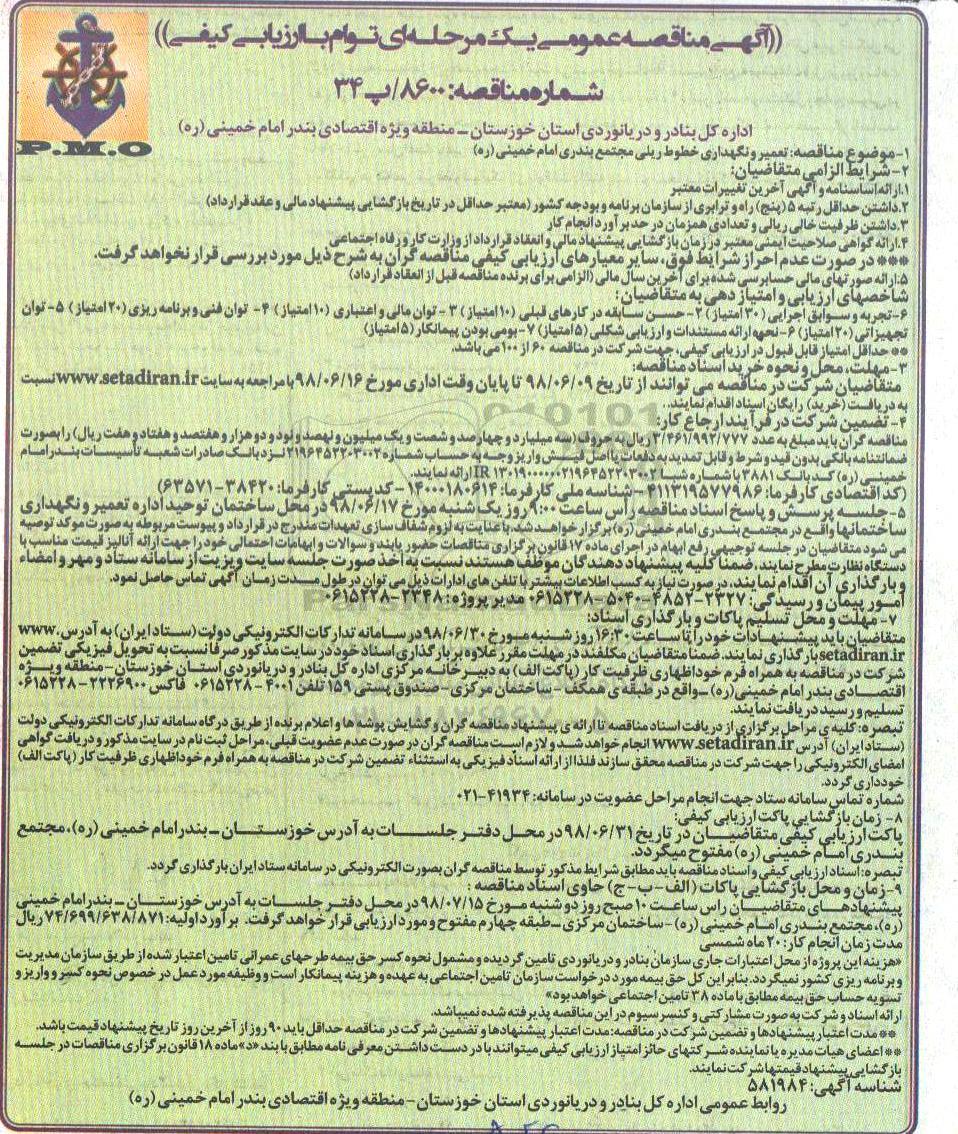 ((آگهی مناقصه عمومی یک مرحله‌ای توام با ارزیابی کیفی))
شماره مناقصه: ۸۶۰۰/پ ۳۴
P.M.O
اداره کل بنادر و دریانوردی استان خوزستان – منطقه ویژه اقتصادی بندر امام خمینی (ره)
۱-موضوع مناقصه: تعمیر و نگهداری خطوط ریلی مجتمع بندری امام خمینی (ره)
۲-شرایط الزامی متقاضیان:
۱.ارائه اساسنامه و آگهی آخرین تغییرات معتبر
۲.داشتن حداقل رتبه ۵ (پنج) راه و ترابری از سازمان برنامه و بودجه کشور (معتبر حداقل در تاریخ بازگشایی پیشنهاد مالی و عقد قرارداد)
۳.داشتن ظرفیت خالی ریالی و تعدادی همزمان در حد برآورد انجام کار
۴.ارائه گواهی صلاحیت ایمنی معتبر در زمان بازگشایی پیشنهاد مالی و انعقاد قرارداد از وزارت کار و رفاه اجتماعی
*** در صورت عدم احراز شرایط فوق، سایر معیارهای ارزیابی کیفی مناقصه گران به شرح ذیل مورد بررسی قرار نخواهد گرفت.
۵.ارائه صورتهای مالی حسابرسی شده برای آخرین سال مالی (الزامی برای برنده مناقصه قبل از انعقاد قرارداد)
شاخصهای ارزیابی و امتیاز دهی به متقاضیان:
۶-تجربه و سوابق اجرایی (۳۰ امتیاز) ۲- حسن سابقه در کارهای قبلی (۱۰ امتیاز) ۳- توان مالی و اعتباری (۱۰ امتیاز) ۴- توان فنی و برنامه ریزی (۲۰ امتیاز) ۵- توان
تجهیزاتی (۲۰ امتیاز) ۶- نحوه ارائه مستندات و ارزیابی شکلی (۵ امتیاز) ۷- بومی بودن پیمانکار (۵ امتیاز)
** حداقل امتیاز قابل قبول در ارزیابی کیفی، جهت شرکت در مناقصه ۶۰ از ۱۰۰ می باشد.
۳-مهلت، محل و نحوه خرید اسناد مناقصه:
متقاضیان شرکت در مناقصه می توانند از تاریخ ۹۸/۰۶/۰۹ تا پایان وقت اداری مورخ ۹۸/۰۶/۱۶ با مراجعه به سایت www.setadiran.ir نسبت
به دریافت (خرید) رایگان اسناد اقدام نمایند.
۴-تضمین شرکت در فرآیند ارجاع کار:
مناقصه گران باید مبلغ به عدد ۳/۴۶۱/۹۹۲/۷۷۷ ریال به حروف (سه میلیارد و چهارصد و شصت و یک میلیون و نهصد و نود و دو هزار و هفتصد و هفتاد و هفت ریال) را بصورت
ضمانتنامه بانکی بدون قید و شرط و قابل تمدید به دفعات یا اصل فیش واریز وجه به حساب شماره ۲۱۹۶۴۵۲۲۰۳۰۰۲ نزد بانک صادرات شعبه تأسیسات بندر امام
خمینی (ره) کد بانک ۳۸۸۱ با شماره شبا IR ۱۳۰۱۹۰۰۰۰۰۰۲۱۹۶۴۵۲۲۰۳۰۰۲ ارائه نمایند.
(کد اقتصادی کارفرما: ۴۱۱۳۱۹۵۷۷۹۸۶ - شناسه ملی کارفرما: ۱۴۰۰۰۱۸۰۶۱۴ - کد پستی کارفرما: ۳۸۴۲۰-۶۳۵۷۱)
۵- جلسه پرسش و پاسخ اسناد مناقصه راس ساعت ۹:۰۰ روز یک شنبه مورخ ۹۸/۰۶/۱۷ در محل ساختمان توحید اداره تعمیر و نگهداری
ساختمانها واقع در مجتمع بندری امام خمینی (ره) برگزار خواهد شد. با عنایت به لزوم شفاف سازی تعهدات مندرج در قرارداد و پیوست مربوطه به صورت موکد توصیه
می شود متقاضیان در جلسه توجیهی رفع ابهام در اجرای ماده ۱۷ قانون برگزاری مناقصات حضور یابند و سوالات و ابهامات احتمالی خود را جهت ارائه آنالیز قیمت مناسب با
دستگاه نظارت مطرح نمایند. ضمنا کلیه پیشنهاد دهندگان موظف هستند نسبت به اخذ صورت جلسه سایت ویزیت از سامانه ستاد و مهر و امضاء
و بارگذاری آن اقدام نمایند. در صورت نیاز به کسب اطلاعات بیشتر با تلفن های ادارات ذیل می توان در طول مدت زمان آگهی تماس حاصل نمود.
امور پیمان و رسیدگی: ۲۳۲۷-۴۸۵۲-۵۰۴۰-۰۶۱۵۲۲۸ مدیر پروژه: ۲۳۴۸-۰۶۱۵۲۲۸
۷- مهلت و محل تسلیم پاکات و بارگذاری اسناد:
متقاضیان باید پیشنهادات خود را تا ساعت ۱۶:۳۰ روز شنبه مورخ ۹۸/۰۶/۳۰ در سامانه تدارکات الکترونیکی دولت (ستاد ایران) به آدرس www.
setadiran.ir بارگذاری نمایند. ضمنا متقاضیان مکلفند در مهلت مقرر علاوه بر بارگذاری اسناد خود در سایت مذکور صرفا نسبت به تحویل فیزیکی تضمین
شرکت در مناقصه به همراه فرم خود اظهاری ظرفیت کار (پاکت الف) به دبیرخانه مرکزی اداره کل بنادر و دریانوردی استان خوزستان-منطقه ویژه
اقتصادی بندر امام خمینی (ره) - واقع در طبقه ی همکف - ساختمان مرکزی - صندوق پستی ۱۵۹ تلفن ۴۰۰۱-۰۶۱۵۲۲۸ فاکس ۰۶۱۵۲۲۸-۲۲۲۶۹۰۰
تسلیم و رسید دریافت نمایند.
تبصره: کلیه ی مراحل برگزاری از دریافت اسناد مناقصه تا ارائه ی پیشنهاد مناقصه گران و گشایش پوشه ها و اعلام برنده از طریق درگاه سامانه تدارکات الکترونیکی دولت
(ستاد ایران) آدرس www.setadiran.ir انجام خواهد شد و لازم است مناقصه گران در صورت عدم عضویت قبلی، مراحل ثبت نام در سایت مذکور و دریافت گواهی
امضای الکترونیکی را جهت شرکت در مناقصه محقق سازند فلذا از ارائه اسناد فیزیکی به استثناء تضمین شرکت در مناقصه به همراه فرم خود اظهاری ظرفیت کار (پاکت الف)
خودداری گردد.
شماره تماس سامانه ستاد جهت انجام مراحل عضویت در سامانه: ۴۱۹۳۴-۰۲۱
۸- زمان بازگشایی پاکت ارزیابی کیفی:
پاکت ارزیابی کیفی متقاضیان در تاریخ ۹۸/۰۶/۳۱ در محل دفتر جلسات به آدرس خوزستان – بندر امام خمینی (ره)، مجتمع
بندری امام خمینی (ره) مفتوح میگردد.
تبصره: اسناد ارزیابی کیفی و اسناد مناقصه باید مطابق شرایط مذکور توسط مناقصه گران بصورت الکترونیکی در سامانه ستاد ایران بارگذاری گردد.
۹-زمان و محل بازگشایی پاکات (الف-ب-ج) حاوی اسناد مناقصه:
پیشنهادهای متقاضیان راس ساعت ۱۰ صبح روز دوشنبه مورخ ۹۸/۰۷/۱۵ در محل دفتر جلسات به آدرس خوزستان – بندر امام خمینی
(ره)، مجتمع بندری امام خمینی (ره) - ساختمان مرکزی – طبقه چهارم مفتوح و مورد ارزیابی قرار خواهد گرفت. برآورد اولیه: ۷۴/۶۹۹/۶۳۸/۸۷۱ ریال
مدت زمان انجام کار: ۲۰ ماه شمسی
«هزینه این پروژه از محل اعتبارات جاری سازمان بنادر و دریانوردی تامین گردیده و مشمول نحوه کسر حق بیمه طرحهای عمرانی تامین اعتبار شده از طریق سازمان مدیریت
و برنامه ریزی کشور نمیگردد. بنابراین کل حق بیمه مورد درخواست سازمان تامین اجتماعی به عهده و هزینه پیمانکار است و وظیفه مورد عمل در خصوص نحوه کسر و واریز و
تسویه حساب حق بیمه مطابق با ماده ۳۸ تامین اجتماعی خواهد بود»
ارائه اسناد و شرکت به صورت مشارکتی و کنسرسیوم در این مناقصه پذیرفته شده نمیباشد.
** مدت اعتبار پیشنهادها و تضمین شرکت در مناقصه: مدت اعتبار پیشنهادها و تضمین شرکت در مناقصه حداقل باید ۹۰ روز از آخرین روز تاریخ پیشنهاد قیمت باشد.
** اعضای هیات مدیره یا نماینده شرکتهای حائز امتیاز ارزیابی کیفی میتوانند با در دست داشتن معرفی نامه مطابق با بند «د» ماده ۱۸ قانون برگزاری مناقصات در جلسه
بازگشایی پیشنهاد قیمتها شرکت نمایند.
شناسه آگهی: ۵۸۱۹۸۴
روابط عمومی اداره کل بنادر و دریانوردی استان خوزستان - منطقه ویژه اقتصادی بندر امام خمینی (ره)